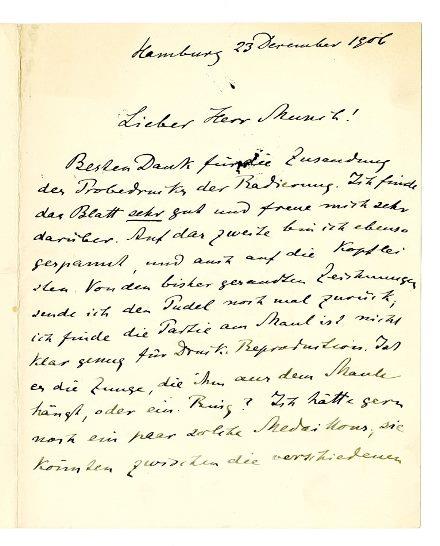 Hamburg 23 Dezember 1906
Lieber Herr Munch!
Besten Dank für die Zusendung
des Probedrucks der Radierung. Ich finde
das Blatt sehr gut und freue mich sehr
darüber. Auf das zweite bin ich ebenso
gespannt, und auch auf die Kopflei
sten. Von den bisher gesandten Zeichnungen
sende ich den Pudel noch mal zurück,
ich finde die Partie am Maul ist nicht
klar genug für Druck. Reproduction. Ist
es die Zunge, die ihm aus dem Maule
hängt, oder ein Ring? Ich hätte gern
noch ein paar solche Medaillons, sie
könnten zwischen die verschiedenen